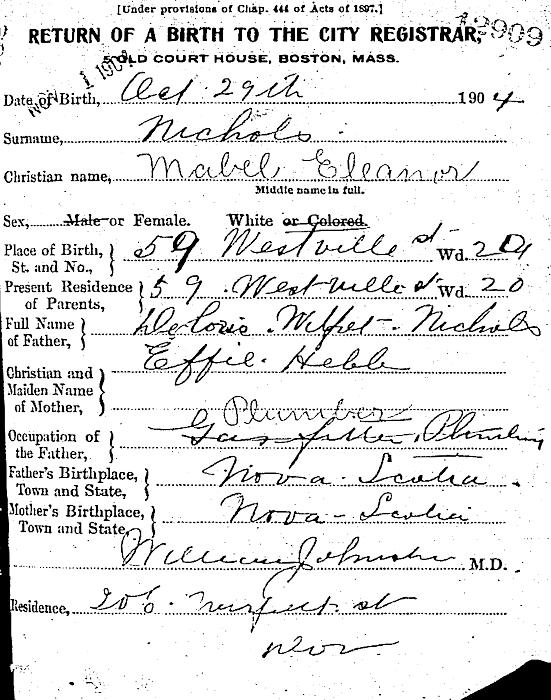 [Under provisions of Chap. 444 of Acts of 1897.]
12909
RETURN OF A BIRTH TO THE CITY REGISTRAR,
OLD COURT HOUSE, BOSTON, MASS.
NOV 1
Date of Birth, Oct 29th 1904
Surname, Nichols
Christian name, Mabel Eleanor
Middle name in full.
Sex, Male or Female. White or Colored.
Place of Birth, St. and No., 59 Westville st Wd. 20
Present Residence of Parents, 59 Westville st Wd. 20
Full Name of Father, Nichols
Christian and Maiden Name of Mother, Effie Hebb
Plumber
Occupation of the Father, Gas fitter, Plumbing
Father's Birthplace, Town and State, Nova-Scotia.
Mother's Birthplace, Town and State, Nova-Scotia
William Johnston M.D.
Residence, 206 st
Dor